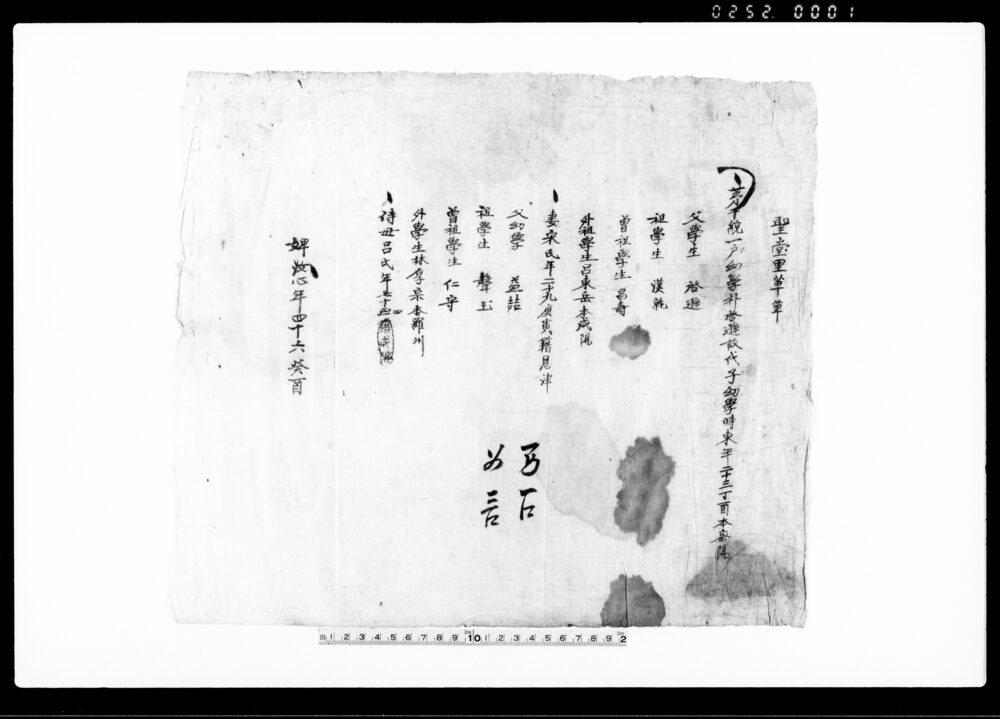 0252 0001
聖堂里草單
統一戶幼學朴啓遜故代子幼學時東年二十三丁酉本密陽
父學生 啓遜
祖學生 漢乾
曾祖學生 昌奇
外祖學生呂東岳本咸陽
妻宋氏年二十九庚寅籍恩津
父幼學 益喆
祖學生 聲玉
曾祖學生 仁守
外學生林厚本羅州
侍母呂氏年七十四籍咸陽
婢汝心年四十六癸酉
m 1 2 3 4 5 6 7 8 9 10 1 2 3 4 5 6 7 8 9 2